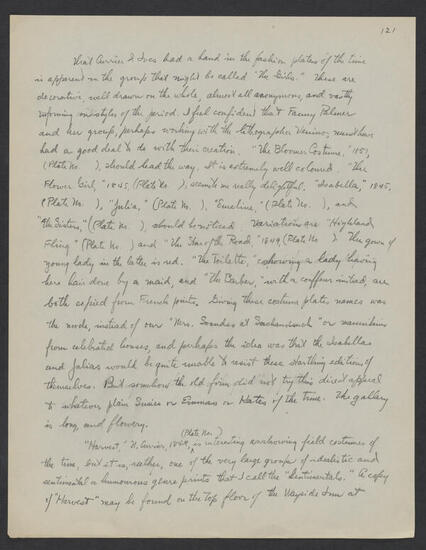 121
That Currier & Ives had a hand in the fashion plates of the time
is apparent in the group that might be called "The Girls." These are
decorative, well drawn on the whole, almost all anonymous, and vastly
informing in styles of the period. I feel confident that Fanny Palmer
and her group, perhaps working with the lithographer Venino, must have
had a good deal to do with their creation. "The Bloomer Costume," 1851,
(Plate No. ), should lead the way. It is extremely well coloured. "The
Flower Girl," 1845, (Plate No. ), seems on really delightful. "Isabella," 1845,
(Plate No. ), "Julia," (Plate No. ), "Emeline," (Plate No. ), and
"The Sisters," (Plate No. ), should be noticed. Variations are "Highland
Fling" (Plate No. ) and "The Star of the Road," 1849, (Plate No. ). The gown of
young lady in the latter is red. "The Toilette," showing a lady having
her hair done by a maid, and "The Barber," with a coiffeur instead, are
both copied from French prints. Giving these costume plates names was
the mode, instead of our "Mrs. Soandso at Suchandsuch" or mannikins
from celebrated houses, and perhaps the idea was that the Isabellas
and Julias would be quite unable to resist these startling editions of
themselves. But somehow the old firm did not try this direct appeal
to whatever plain Susies or Emmas or Kates of the time. The gallery
is long, and flowery.
(Plate No. )
"Harvest," N. Currier, 1849, is interesting as showing field costumes of
the time, but it is, rather, one of the very large group of idealistic and
sentimental or humourous genre prints that I call the "Sentimentals." A copy
of "Harvest" may be found on the top floor of the Wayside Inn at